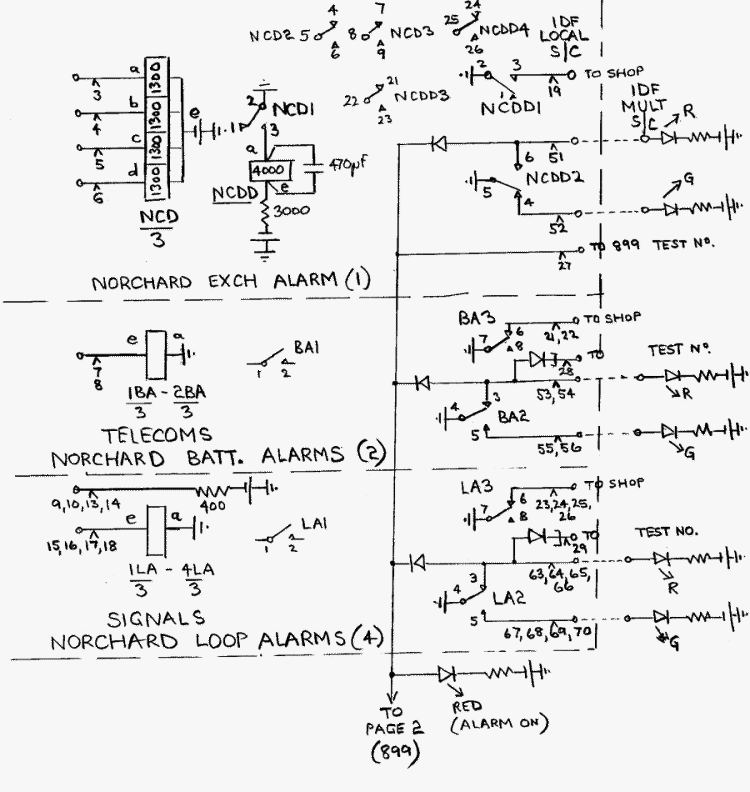 4 7 24
NCD2 5 6
8 NCD3 9
25 NCDD4 26
IDF
LOCAL
S/C
2 3 TO SHOP
1 19
NCDD1
21
22 NCDD3
23
a 1300
3
b 1300
4
c 1300
5
d 1300
6
e
NCD
3
2 NCD1
1 3
a
4000
470µF
NCDD e
3000
IDF
MULT
S/C
R
51
6
NCDD2
5
4
G
52
TO 899 TEST NO.
27
NORCHARD EXCH ALARM (1)
BA3
6 TO SHOP
7 8 21,22
TO TEST NO.
28
53,54
R
3
4 BA2
5
55,56
G
e a
7
8
1BA - 2BA
3 3
BA1
1 2
TELECOMS
NORCHARD BATT. ALARMS (2)
9,10,13,14 400
e a
15,16,17,18
1LA - 4LA
3 3
LA1
1 2
LA3
6 TO SHOP
7 8 23,24,25,
26
TO TEST NO.
29
63,64,65,
66
R
3
4 LA2
5
67,68,69,70
G
SIGNALS
NORCHARD LOOP ALARMS (4)
RED
(ALARM ON)
TO
PAGE 2
(899)